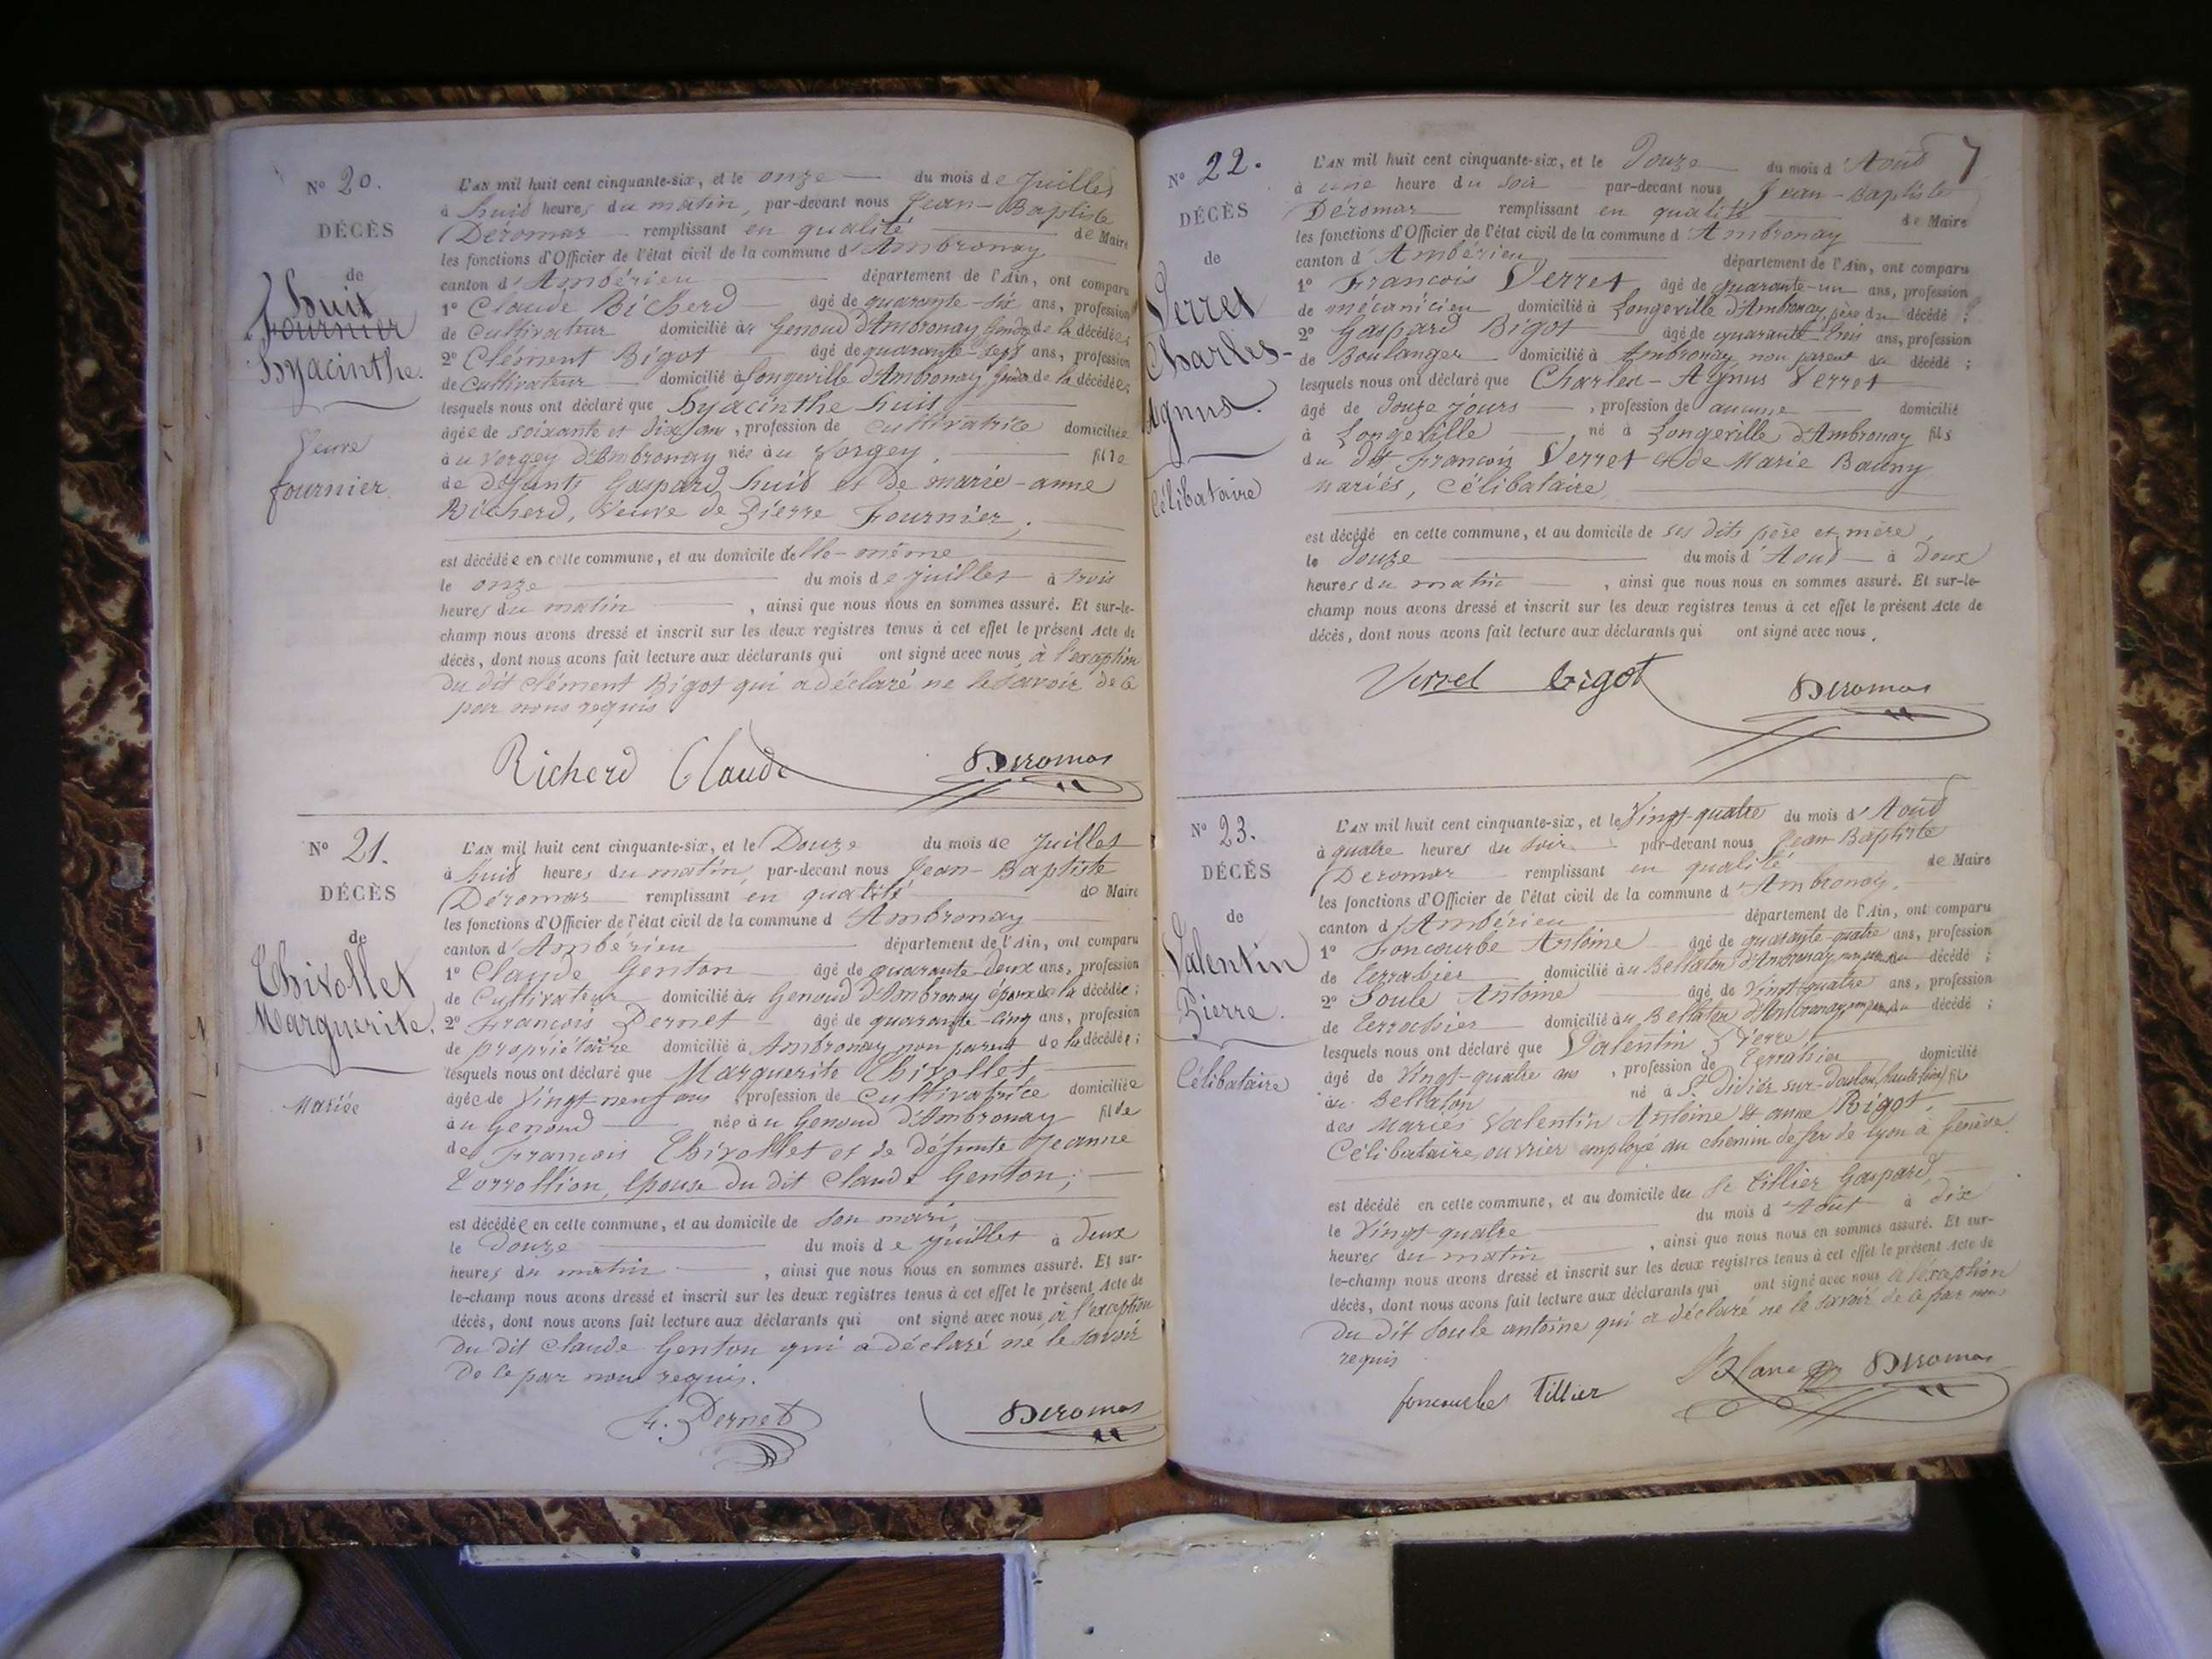 N° 20.
DÉCÈS
de
huit
Fournier
hyacinthe.
Veuve
fournier
L'AN mil huit cent cinquante-six, et le onze du mois de Juillet
à huit heures du matin, par-devant nous Jean-Baptiste
Déromas remplissant en qualité de Maire
les fonctions d'Officier de l'état civil de la commune d'Ambronay
canton d'Ambérieu département de l'Ain, ont comparu
1° Claude Richerd âgé de quarante-six ans, profession
de cultivateur domicilié au Genoud d'Ambronay de la décédée;
2° Clément Bigot âgé de quarante-sept ans, profession
de Cultivateur domicilié à Longeville d'Ambronay de la décédée;
lesquels nous ont déclaré que hyacinthe huit
âgée de soixante et dix ans, profession de cultivatrice domiciliée
au Vorgey d'Ambronay née au Vorgey fille
de défunts Gaspard huit et de marie-anne
Richerd, Veuve de Pierre Fournier,
est décédée en cette commune, et au domicile d'elle-même
le onze du mois de juillet à trois
heures du matin, ainsi que nous nous en sommes assuré. Et sur-le-
champ nous avons dressé et inscrit sur les deux registres tenus à cet effet le présent Acte de
décès, dont nous avons fait lecture aux déclarants qui ont signé avec nous, à l'exception
du dit clément Bigot qui a déclaré ne le savoir de ce
par nous requis
Richerd Claude Deromas
N° 21.
DÉCÈS
de
Thivollet
Marguerite.
Mariée
L'AN mil huit cent cinquante-six, et le Douze du mois de Juillet
à huit heures du matin, par-devant nous Jean-Baptiste
Déromas remplissant en qualité de Maire
les fonctions d'Officier de l'état civil de la commune d'Ambronay
canton d'Ambérieu département de l'Ain, ont comparu
1° Claude Genton âgé de quarante-deux ans, profession
de Cultivateur domicilié au Genoud d'Ambronay époux de la décédée;
2° François Pernet âgé de quarante-cinq ans, profession
de propriétaire domicilié à Ambronay non parent de la décédée;
lesquels nous ont déclaré que Marguerite Thivollet,
âgée de Vingt neuf ans profession de Cultivatrice domiciliée
au Genoud née au Genoud d'Ambronay fille
de François Thivollet et de défunte Jeanne
épouse du dit Claude Genton;
est décédée en cette commune, et au domicile de son mari,
le Douze du mois de juillet à deux
heures du matin, ainsi que nous nous en sommes assuré. Et sur-
le-champ nous avons dressé et inscrit sur les deux registres tenus à cet effet le présent Acte de
décès, dont nous avons fait lecture aux déclarants qui ont signé avec nous, à l'exception
du dit Claude Genton qui a déclaré ne le savoir
de ce par nous requis.
F. Pernet Deromas
7
N° 22.
DÉCÈS
de
Verret
Charles-
Agnus.
Célibataire
L'AN mil huit cent cinquante-six, et le Douze du mois d'Aout
à une heure du soir par-devant nous Jean-Baptiste
Déromas remplissant en qualité de Maire
les fonctions d'Officier de l'état civil de la commune d'Ambronay
canton d'Ambérieu département de l'Ain, ont comparu
1° François Verret âgé de quarante-un ans, profession
de mécanicien domicilié à Longeville d'Ambronay, père du décédé;
2° Gaspard Bigot âgé de quarante-trois ans, profession
de Boulanger domicilié à Ambronay non parent du décédé;
lesquels nous ont déclaré que Charles-Agnus Verret
âgé de Douze jours, profession de aucune domicilié
à Longeville, né à Longeville d'Ambronay fils
du dit François Verret et de Marie Bauny
mariés, célibataire
est décédé en cette commune, et au domicile de ses dits père et mère
le Douze du mois d'Aout à Deux
heures du matin, ainsi que nous nous en sommes assuré. Et sur-le-
champ nous avons dressé et inscrit sur les deux registres tenus à cet effet le présent Acte de
décès, dont nous avons fait lecture aux déclarants qui ont signé avec nous.
Verret bigot Deromas
N° 23.
DÉCÈS
de
Valentin
Pierre.
Célibataire
L'AN mil huit cent cinquante-six, et le Vingt-quatre du mois d'Aout
à quatre heures du soir par-devant nous Jean Baptiste
Deromas remplissant en qualité de Maire
les fonctions d'Officier de l'état civil de la commune d'Ambronay,
canton d'Ambérieu département de l'Ain, ont comparu
1° Foncourbe Antoine âgé de quarante-quatre ans, profession
de terrassier domicilié au Bellaton d'Ambronay décédé;
2° Soule Antoine âgé de Vingt-quatre ans, profession
de terrassier domicilié au Bellaton d'Ambronay décédé;
lesquels nous ont déclaré que Valentin Pierre
âgé de Vingt-quatre ans, profession de terrassier domicilié
au Bellaton né à St Didier-sur-Doulon, haute loire fils
des mariés Valentin Antoine et anne Rigot,
Célibataire, ouvrier employé au chemin de fer de lyon à genève.
est décédé en cette commune, et au domicile du Sr tillier Gaspard,
le Vingt-quatre du mois d'Aout à dix
heures du matin, ainsi que nous nous en sommes assuré. Et sur-
le-champ nous avons dressé et inscrit sur les deux registres tenus à cet effet le présent Acte de
décès, dont nous avons fait lecture aux déclarants qui ont signé avec nous à l'exception
du dit Soule antoine qui a déclaré ne le savoir de ce par nous
requis
foncourbes tillier Deromas